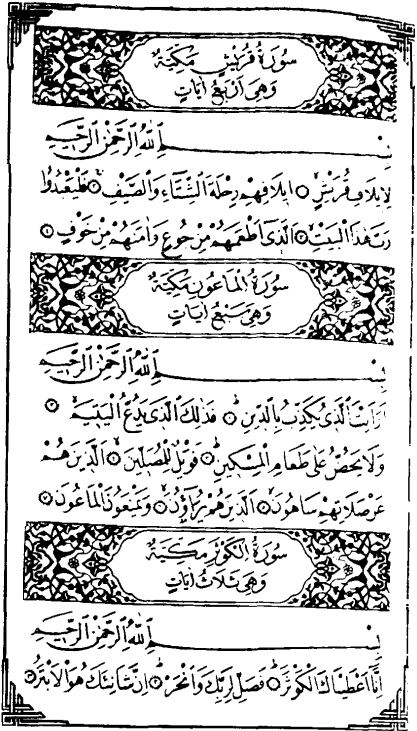 سُورَةُ قُرَيْشٍ مَكِّيَّةٌ
وَهِيَ أَرْبَعُ اٰيَاتٍ
بِسْمِ اللّٰهِ الرَّحْمٰنِ الرَّحِيمِ
لِاِيلَافِ قُرَيْشٍ ﴿١﴾ اِيلَافِهِمْ رِحْلَةَ الشِّتَٓاءِ وَالصَّيْفِ ﴿٢﴾ فَلْيَعْبُدُوا
رَبَّ هٰذَا الْبَيْتِ ﴿٣﴾ اَلَّذِٓى اَطْعَمَهُمْ مِنْ جُوعٍ وَاٰمَنَهُمْ مِنْ خَوْفٍ ﴿٤﴾
سُورَةُ الْمَاعُونِ مَكِّيَّةٌ
وَهِيَ سَبْعُ اٰيَاتٍ
بِسْمِ اللّٰهِ الرَّحْمٰنِ الرَّحِيمِ
اَرَاَيْتَ الَّذِى يُكَذِّبُ بِالدِّينِ ﴿١﴾ فَذٰلِكَ الَّذِى يَدُعُّ الْيَتِيمَ ﴿٢﴾
وَلَا يَحُضُّ عَلٰى طَعَامِ الْمِسْكِينِ ﴿٣﴾ فَوَيْلٌ لِلْمُصَلِّينَ ﴿٤﴾ اَلَّذِينَ هُمْ
عَنْ صَلَاتِهِمْ سَاهُونَ ﴿٥﴾ اَلَّذِينَ هُمْ يُرَٓاؤُنَ ﴿٦﴾ وَيَمْنَعُونَ الْمَاعُونَ ﴿٧﴾
سُورَةُ الْكَوْثَرِ مَكِّيَّةٌ
وَهِيَ ثَلَاثُ اٰيَاتٍ
بِسْمِ اللّٰهِ الرَّحْمٰنِ الرَّحِيمِ
اِنَّٓا اَعْطَيْنَاكَ الْكَوْثَرَ ﴿١﴾ فَصَلِّ لِرَبِّكَ وَانْحَرْ ﴿٢﴾ اِنَّ شَانِئَكَ هُوَ الْاَبْتَرُ ﴿٣﴾